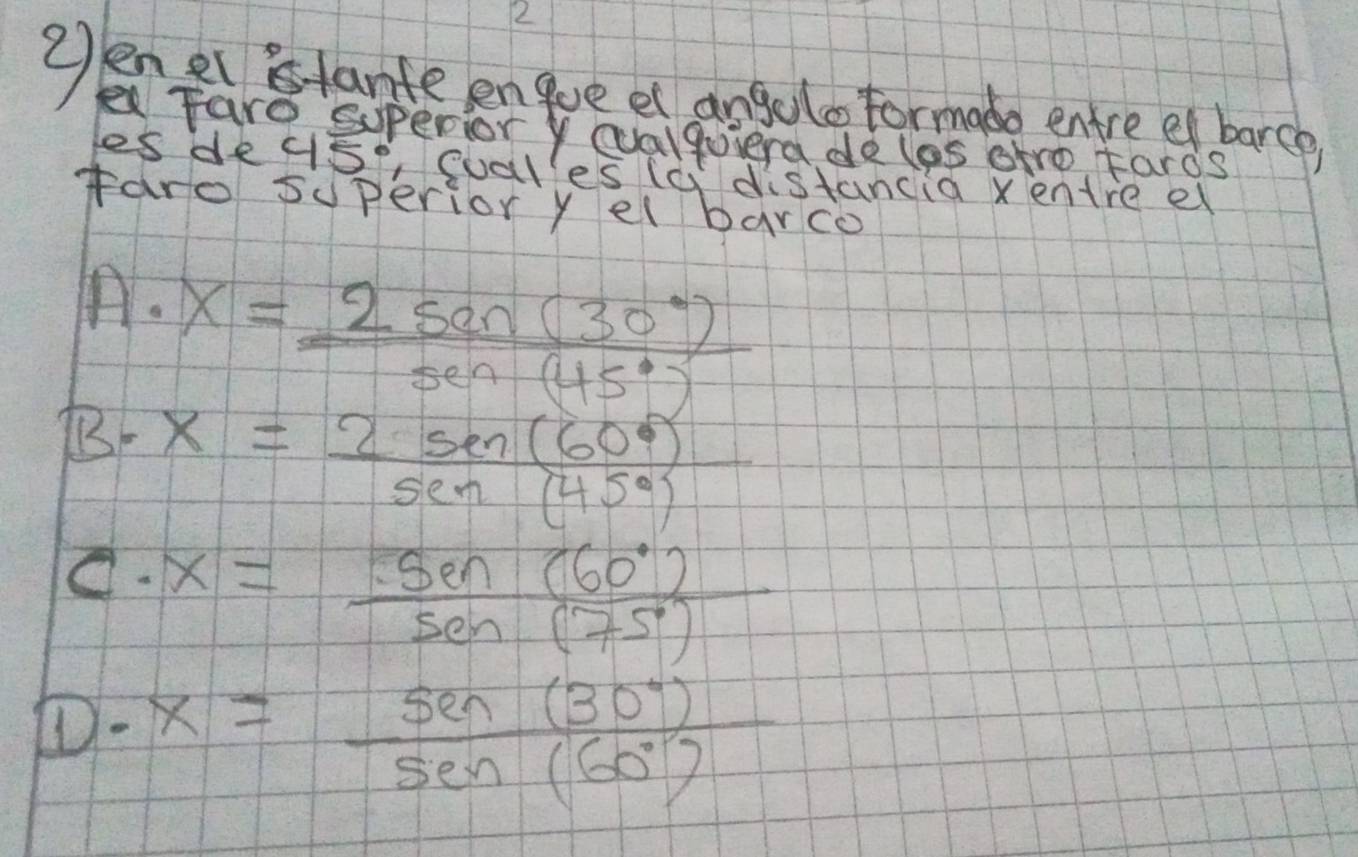 2
2) en el istante en que el angulo formado entre el barco,
el Faro superior y cualquiera de los otro faros
es de 45°, cual es la distancia x entre el
faro superior y el barco
A. X = 2 sen (30°)
sen (45°)
B. X = 2 sen (60°)
sen (45°)
C. X = sen (60°)
sen (75°)
D. X = sen (30°)
sen (60°)